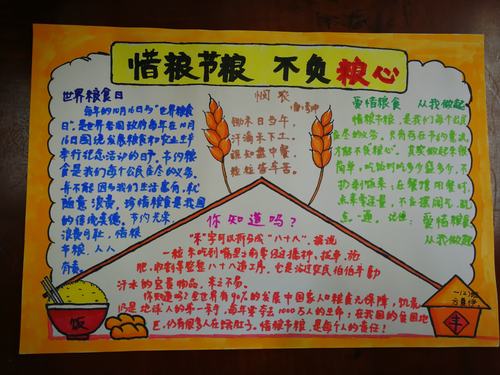 惜粮节粮 不负粮心
世界粮食日
每年的10月16日为“世界粮食
日”。是世界各国政府每年在10月
16日围绕发展粮食和农业生产
举行纪念活动的日子。节约粮
食是我们每个公民应尽的义务。
并不能因为我们生活富有，就
随意浪费，珍惜粮食是我国
的传统美德。节约光荣，
浪费可耻，惜粮
节粮，人人
有责。
悯农
锄禾日当午，
汗滴禾下土。
谁知盘中餐，
粒粒皆辛苦。
爱惜粮食 从我做起
惜粮节粮，是我们每个公民
应尽的义务。
简单，吃饭时吃多少盛多少，不
扔剩饭菜，在餐馆用餐时
点菜要适量，不要摆阔气，乱
点一通。记住：爱惜粮食
从我做起
你知道吗？
“米”字可以拆分成“八十八”，据说
一粒米吃到嘴里之前要经过播种，插秧，施
肥，收割等整整八十八道工序，它是经过农民伯伯辛勤
汗水的宝贵物品，来之不易。
你知道吗？全世界有90%的发展中国家人口粮食无保障，饥荒
仍是地球人的第一杀手，每年要夺去1000万人的生命；在我国的贫困地
区，仍有很多人在饿肚子。惜粮节粮，是每个人的责任！
饭
丰